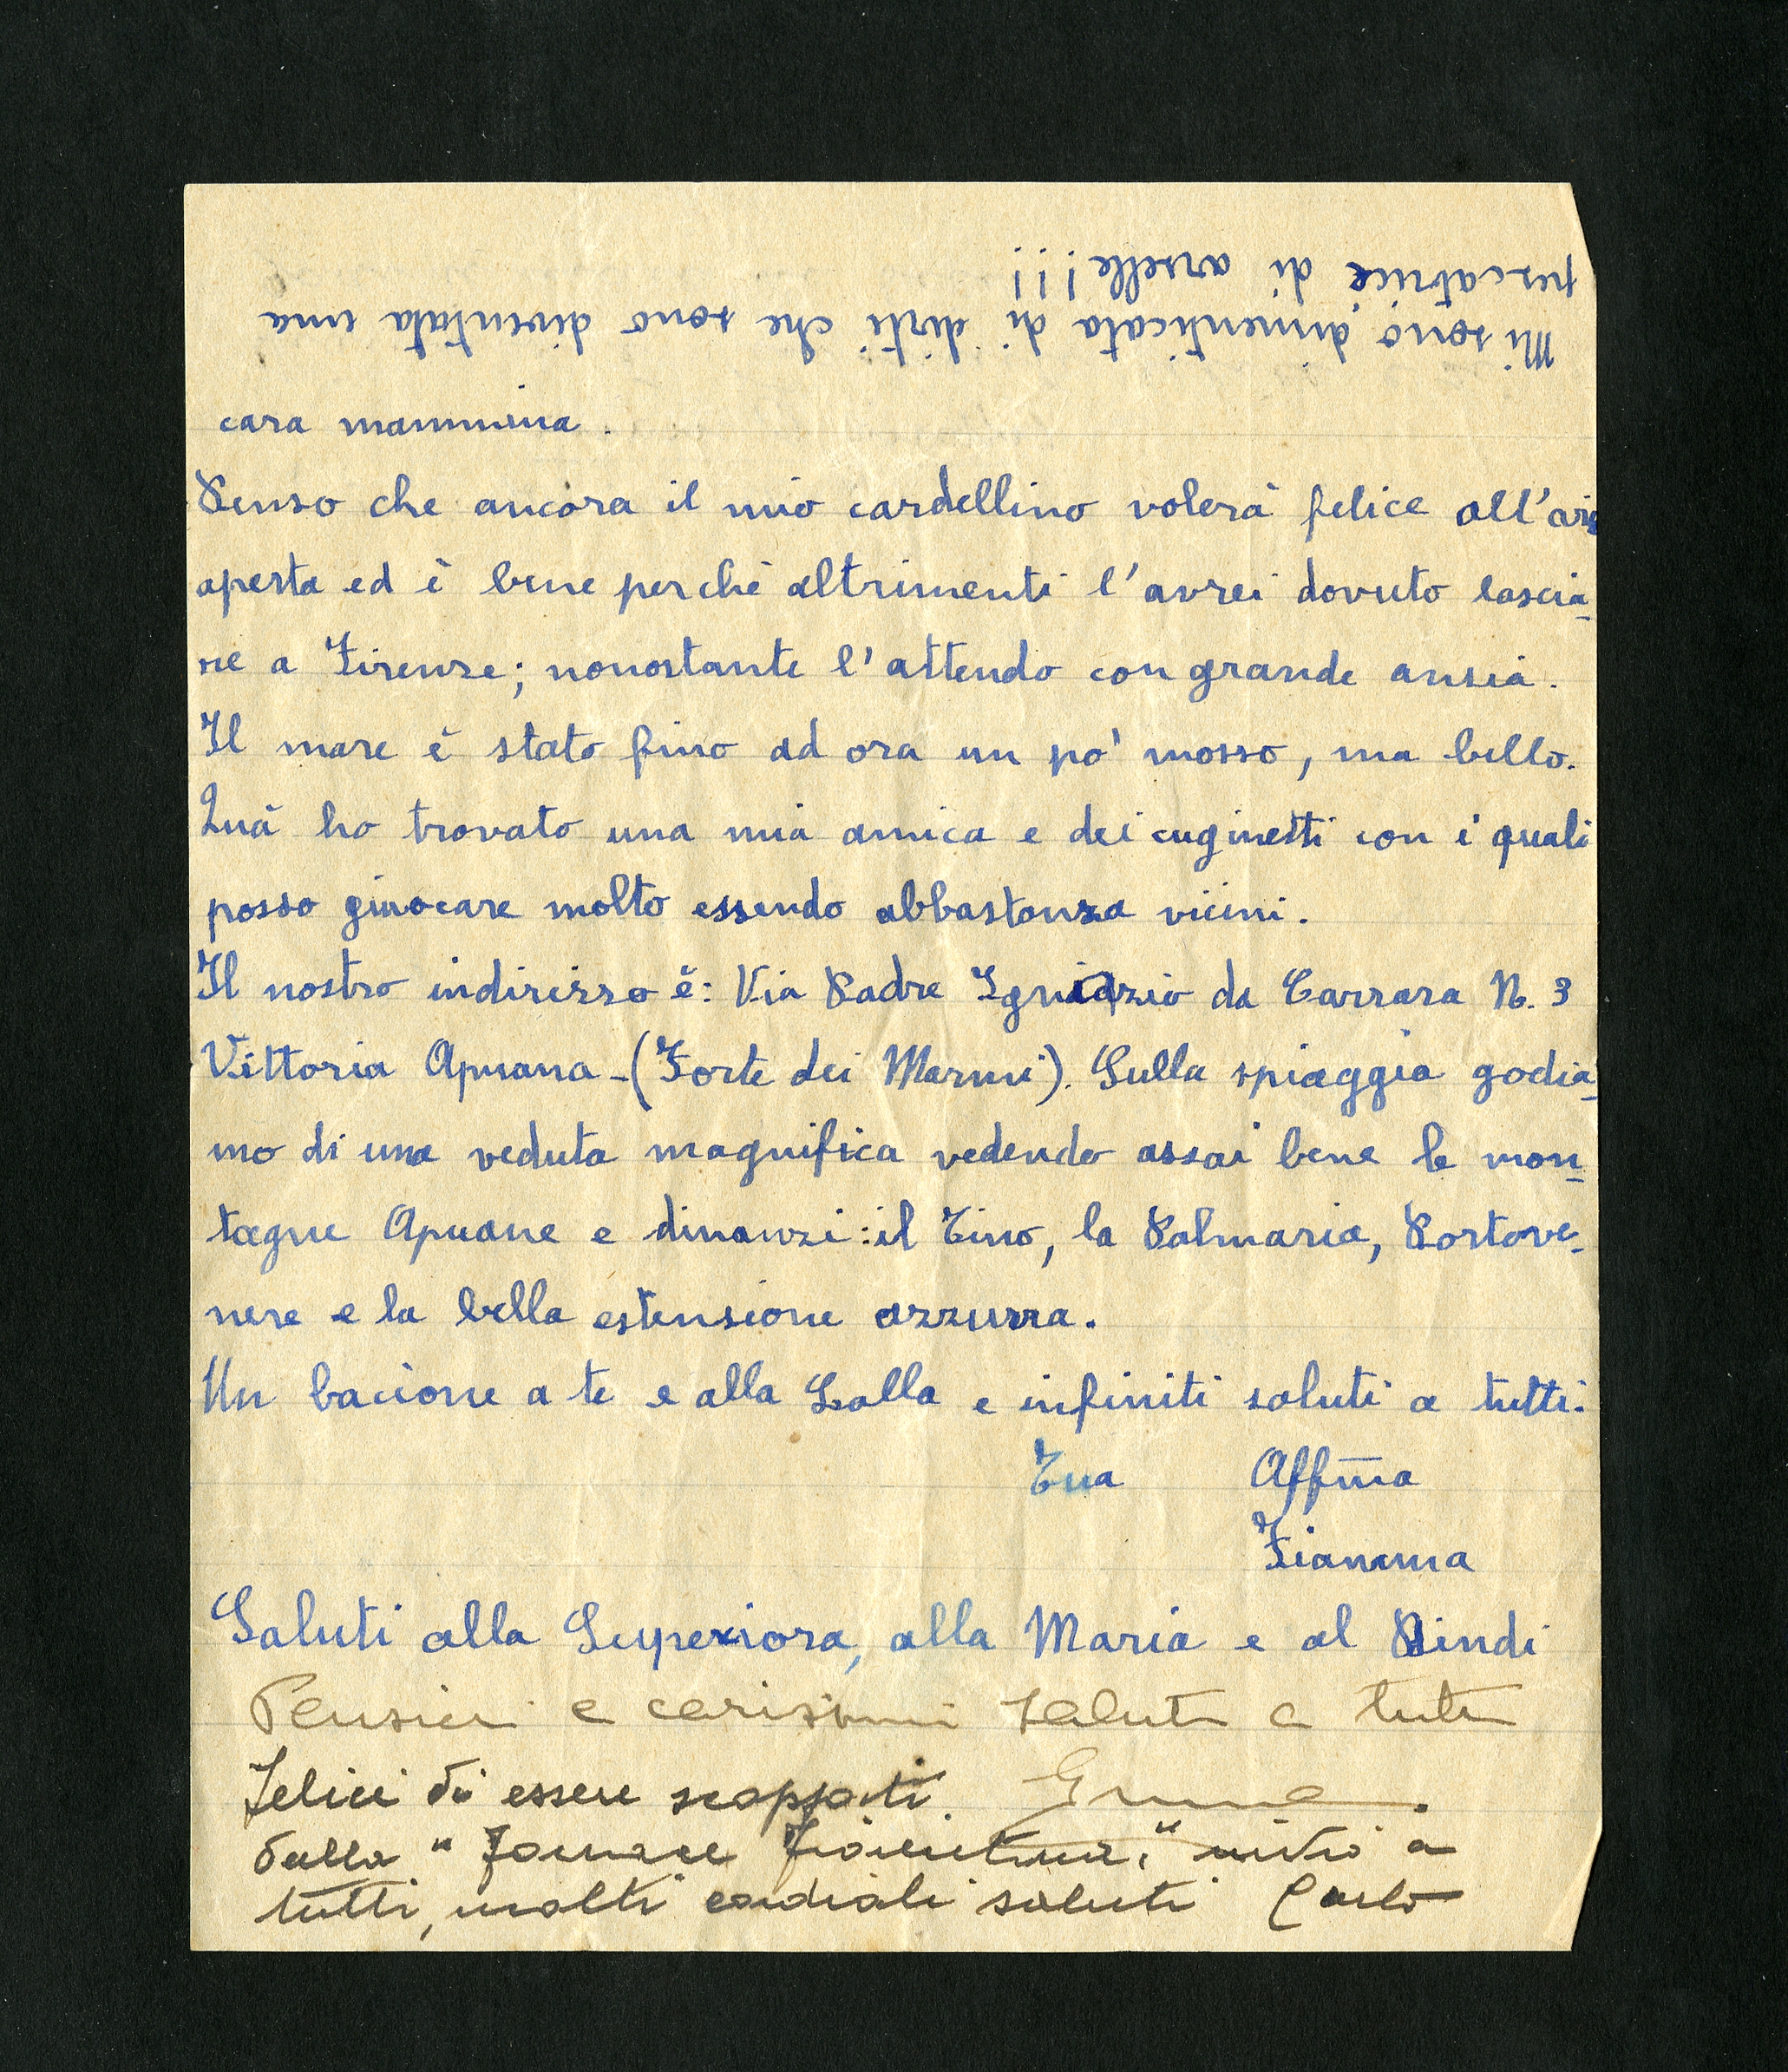 Mi sono dimenticata di dirti che sono diventata una
pescatrice di arselle!!!
cara mammina.
Penso che ancora il mio cardellino volerà felice all'aria
aperta ed è bene perchè altrimenti l'avrei dovuto lascia-
re a Firenze; nonostante l'attendo con grande ansia.
Il mare è stato fino ad ora un po' mosso, ma bello.
Quà ho trovato una mia amica e dei cuginetti con i quali
posso giuocare molto essendo abbastanza vicini.
Il nostro indirizzo è: Via Padre Ignazio da Carrara N. 3
Vittoria Apuana - (Forte dei Marmi). Sulla spiaggia godia-
mo di una veduta magnifica vedendo assai bene le mon-
tagne Apuane e dinanzi: il Tino, la Palmaria, Portove-
nere e la bella estensione azzurra.
Un bacione a te e alla Lalla e infiniti saluti a tutti.
Tua Aff͞ma
Fiamma
Saluti alla Superiora, alla Maria e al Bindi
Pensieri e carissimi saluti a tutti
Felici di essere scappati
dalla "Fornace Fiorentina," invio a
tutti, molti cordiali saluti Carlo